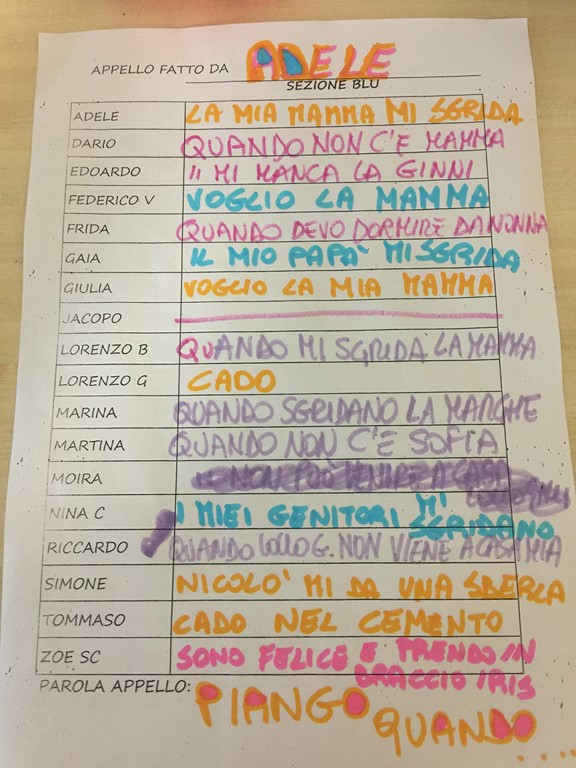 APPELLO FATTO DA ADELE
SEZIONE BLU
ADELE LA MIA MAMMA MI SGRIDA
DARIO QUANDO NON C'E MAMMA
EDOARDO MI MANCA LA GINNI
FEDERICO V VOGLIO LA MAMMA
FRIDA QUANDO DEVO DORMIRE DA NONNA
GAIA IL MIO PAPA' MI SGRIDA
GIULIA VOGLIO LA MIA MAMMA
JACOPO
LORENZO B QUANDO MI SGRIDA LA MAMMA
LORENZO G CADO
MARINA QUANDO SGRIDANO LA MARGHE
MARTINA QUANDO NON C'E SOFIA
MOIRA NON PUÒ VENIRE A CASA
NINA C I MIEI GENITORI MI
SGRIDANO
RICCARDO QUANDO LOLLO G. NON VIENE A CASA MIA
SIMONE NICOLO' MI DA UNA SBERLA
TOMMASO CADO NEL CEMENTO
ZOE SC SONO FELICE E PRENDO IN
BRACCIO IRIS
PAROLA APPELLO: PIANGO QUANDO
....